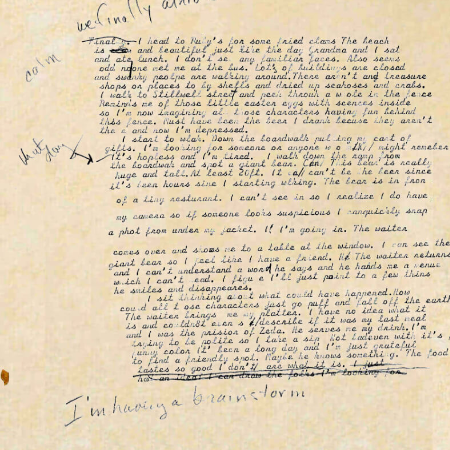 we finally
Finally. I head to Rudy's for some fried clams The beach
calm
is and beautiful just like the day Grandma and I sat
and ate lunch. I don't see any familiar faces. Also seems
odd no one met me at the bus. Lots of buildings are closed
and people are walking around. There aren't any treasure
shops or places to by shells and dried up seahoses and crabs.
I walk to Stillwell street and peek through a whole in the fence
Reminds me of those little easter eggs with scences inside
so I'm now imagining all those characters having fun behind
this fence. Must have been the beer I drank because they aren't
the e and now I'm depressed.
I start to walk down the boardwalk pulling my cart of
gifts. I'm looking for someone or anyone who might remember
it's hopless and I'm tired. I walk down the ramp from
the boardwalk and spot a giant bear. This bear is really
huge and tall. At least 20ft. It can't be the beer since
it's been hours since I started walking. The bear is in fron
of a tiny resturant. I can't see in so I realize I do have
my camera so if someone looks suspicious I can quickly snap
a phot from under my jacket. I'm going in. The waiter
comes over and shows me to a table at the window. I can see the
giant bear so I feel like I have a friend. The waiter returns
and I can't understand a word he says and he hands me a menue
which I can't read. I figure I'll just point to a few thins
he smiles and disappears.
I sit thinking about what could have happened. How
could all those characters just go puff and fall off the earth
The waiter brings me my platter. I have no idea what it
is and couldn't even describe if it was my last meal
and I was the prission of Zeda. He serves me my drink. I'm
trying to be polite so I take a sip. Not bad even with it's
funny color it been a long day and I'm just grateful
to find a friendly spot. Maybe he knows something. The food
tastes so good I don't care what it is. I just
I'm having a brainstorm